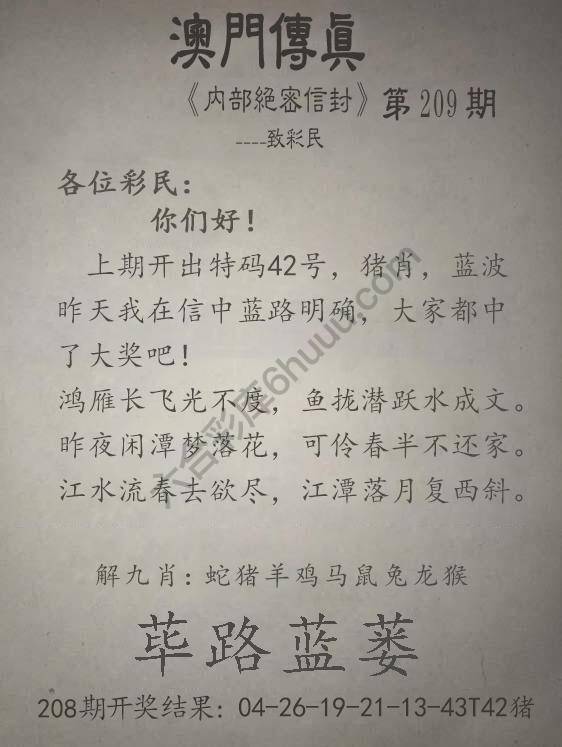 澳門傳眞
《内部絕密信封》第209期
----致彩民
各位彩民：
你们好！
上期开出特码42号，猪肖，蓝波
昨天我在信中蓝路明确，大家都中
了大奖吧！
鸿雁长飞光不度，鱼拢潜跃水成文。
昨夜闲潭梦落花，可伶春半不还家。
江水流春去欲尽，江潭落月复西斜。
六合彩库6huuu.com
解九肖：蛇猪羊鸡马鼠兔龙猴
荜路蓝蒌
208期开奖结果：04-26-19-21-13-43T42猪